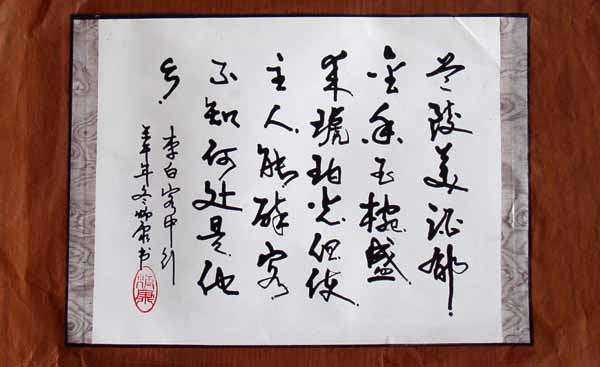 兰陵美酒郁
金香玉椀盛
来琥珀光但使
主人能醉客
不知何处是他
乡
李白客中行
壬午年冬炳康书
炳康